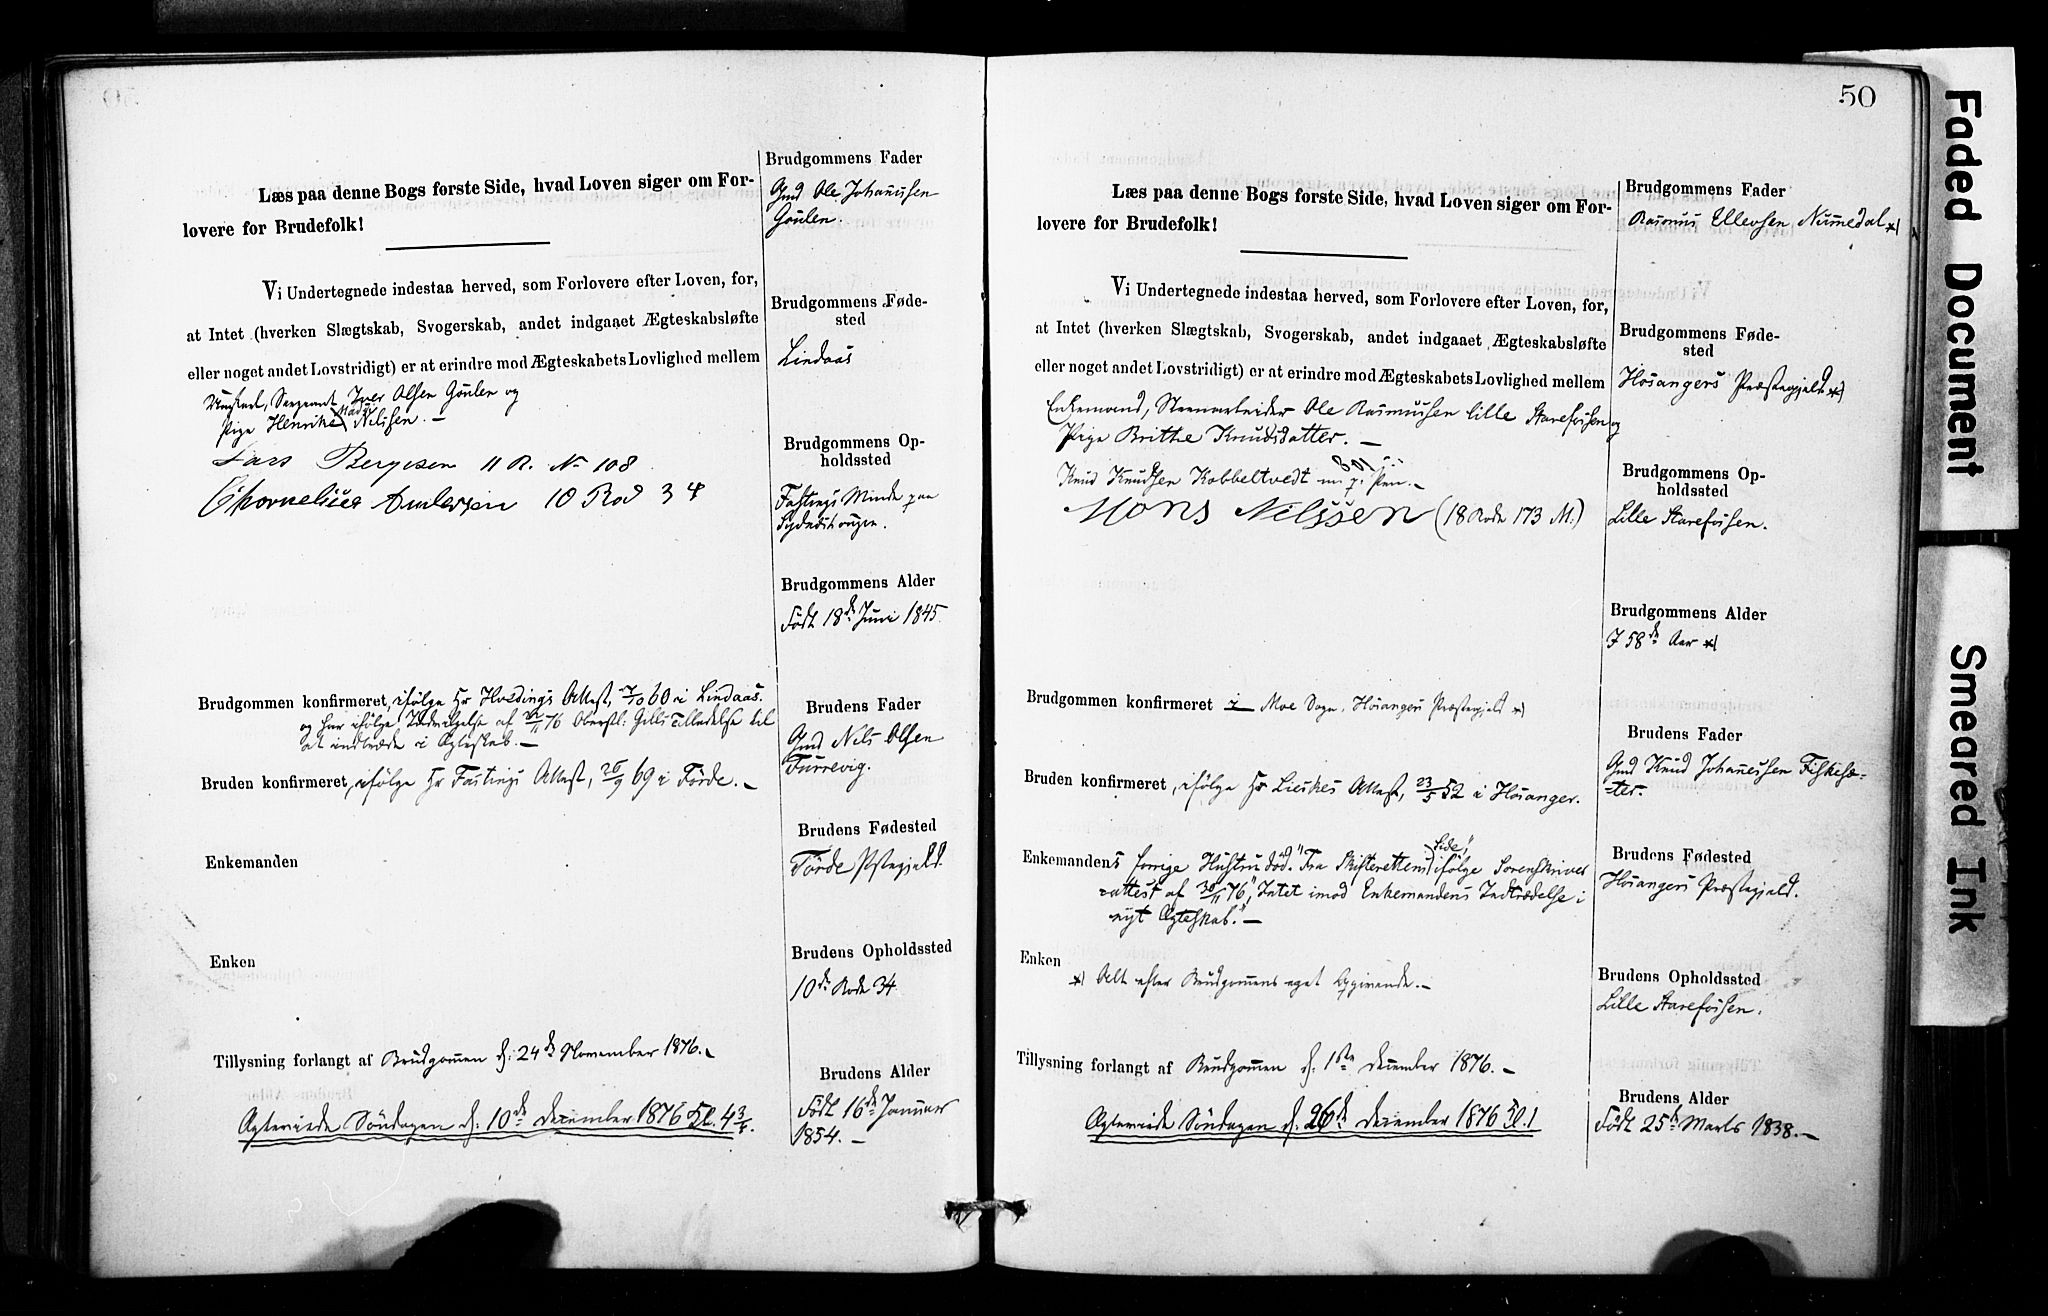 Læs paa denne Bogs første Side, hvad Loven siger om For-
lovere for Brudefolk!
Vi Undertegnede indestaa herved, som Forlovere efter Loven, for,
at Intet (hverken Slægtskab, Svogerskab, andet indgaaet Ægteskabsløfte
eller noget andet Lovstridigt) er at erindre mod Ægteskabets Lovlighed mellem
Ungkarl, Sergeant Iver Olsen Goulen og
Pige Henrikke Nilsen. —
Lars Bergesen 11 R. No 108
Chornelius Andersen 10 Rod 34
Brudgommen konfirmeret, ifølge Hr Hvedings Attest, 7/10 60 i Lindaas.
og har ifølge Indvilgelse af 22/11 76 Oberstl: Gills Tilladelse til
at indtræde i Ægteskab. —
Bruden konfirmeret, ifølge Hr Fastings Attest, 26/9 69 i Førde. —
Enkemanden
Enken
Tillysning forlangt af Brudgommen d: 24de November 1876. —
Ægteviede Søndagen d: 10de December 1876 Kl. 4 3/4.
Brudgommens Fader
Gmd Ole Johannssen
Goulen.
Brudgommens Føde-
sted
Lindaas
Brudgommens Op-
holdssted
Fastings Minde paa
Sydnæshougen.
Brudgommens Alder
Født 18de Juni 1845.
Brudens Fader
Gmd Nils Olsen
Furrevig.
Brudens Fødested
Førde Pstegjæld.
Brudens Opholdssted
10de Rode 34
Brudens Alder
Født 16de Januar
1854. —
50
Læs paa denne Bogs første Side, hvad Loven siger om For-
lovere for Brudefolk!
Vi Undertegnede indestaa herved, som Forlovere efter Loven, for,
at Intet (hverken Slægtskab, Svogerskab, andet indgaaet Ægteskabsløfte
eller noget andet Lovstridigt) er at erindre mod Ægteskabets Lovlighed mellem
Enkemand, Steenarbeider Ole Rasmussen lille Starefossen og
Pige Brithe Knudsdatter. —
Knud Knudsen Kobbeltvedt m. p. Pen. —
Mons Nilssen (18 Rode 173 M:)
Brudgommen konfirmeret i Moe Sogn, Hosangers Præstegjeld *)
Bruden konfirmeret, ifølge Hr Lieskes Attest, 23/5 52 i Hosanger.
Enkemandens forrige Hustru død. "Fra Skifterettens Side," ifølge Sorenskriver
attest af 30/11 76, "Intet imod Enkemandens Indtrædelse i
nyt Ægteskab." —
Enken
*) Alt efter Brudgommens eget Opgivende. —
Tillysning forlangt af Brudgommen d. 1ste December 1876. —
Ægteviede Søndagen d. 26de December 1876 Kl. 1
Brudgommens Fader
Rasmus Ellevsen Nummedal *)
Brudgommens Føde-
sted
Hosangers Præstegjeld *)
Brudgommens Op-
holdssted
Lille Starefossen.
Brudgommens Alder
I 58de Aar *)
Brudens Fader
Gmd Knud Johannessen Fiskesæ-
-ter.
Brudens Fødested
Hosangers Præstegjæld.
Brudens Opholdssted
Lille Starefossen.
Brudens Alder
Født 25de Marts 1838. —
Faded Document
Smeared Ink